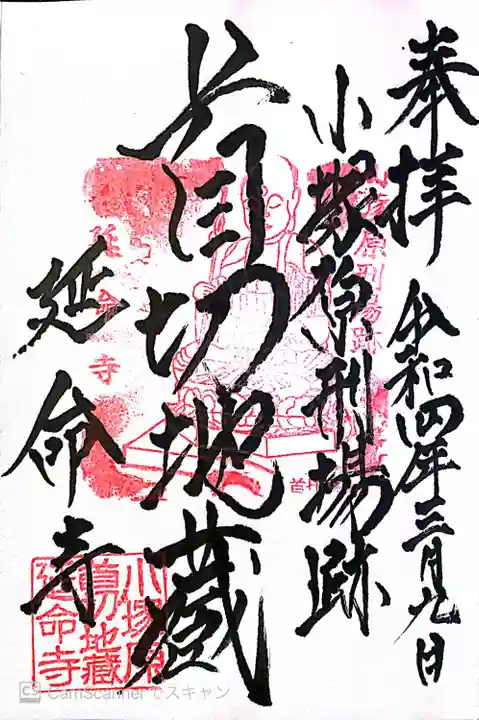 奉拝
令和四年三月九日
小塚原刑場跡
首切地蔵
延命寺
延命寺
小塚原
首切地蔵
延命寺
CS CamScannerでスキャン